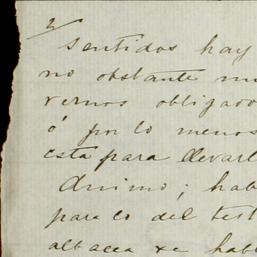 2/
Sentidos hay
no obstante
vernos obligado
ó por lo menos
esta para llevarl
Animo; hab
para lo del test
albacea xe hab